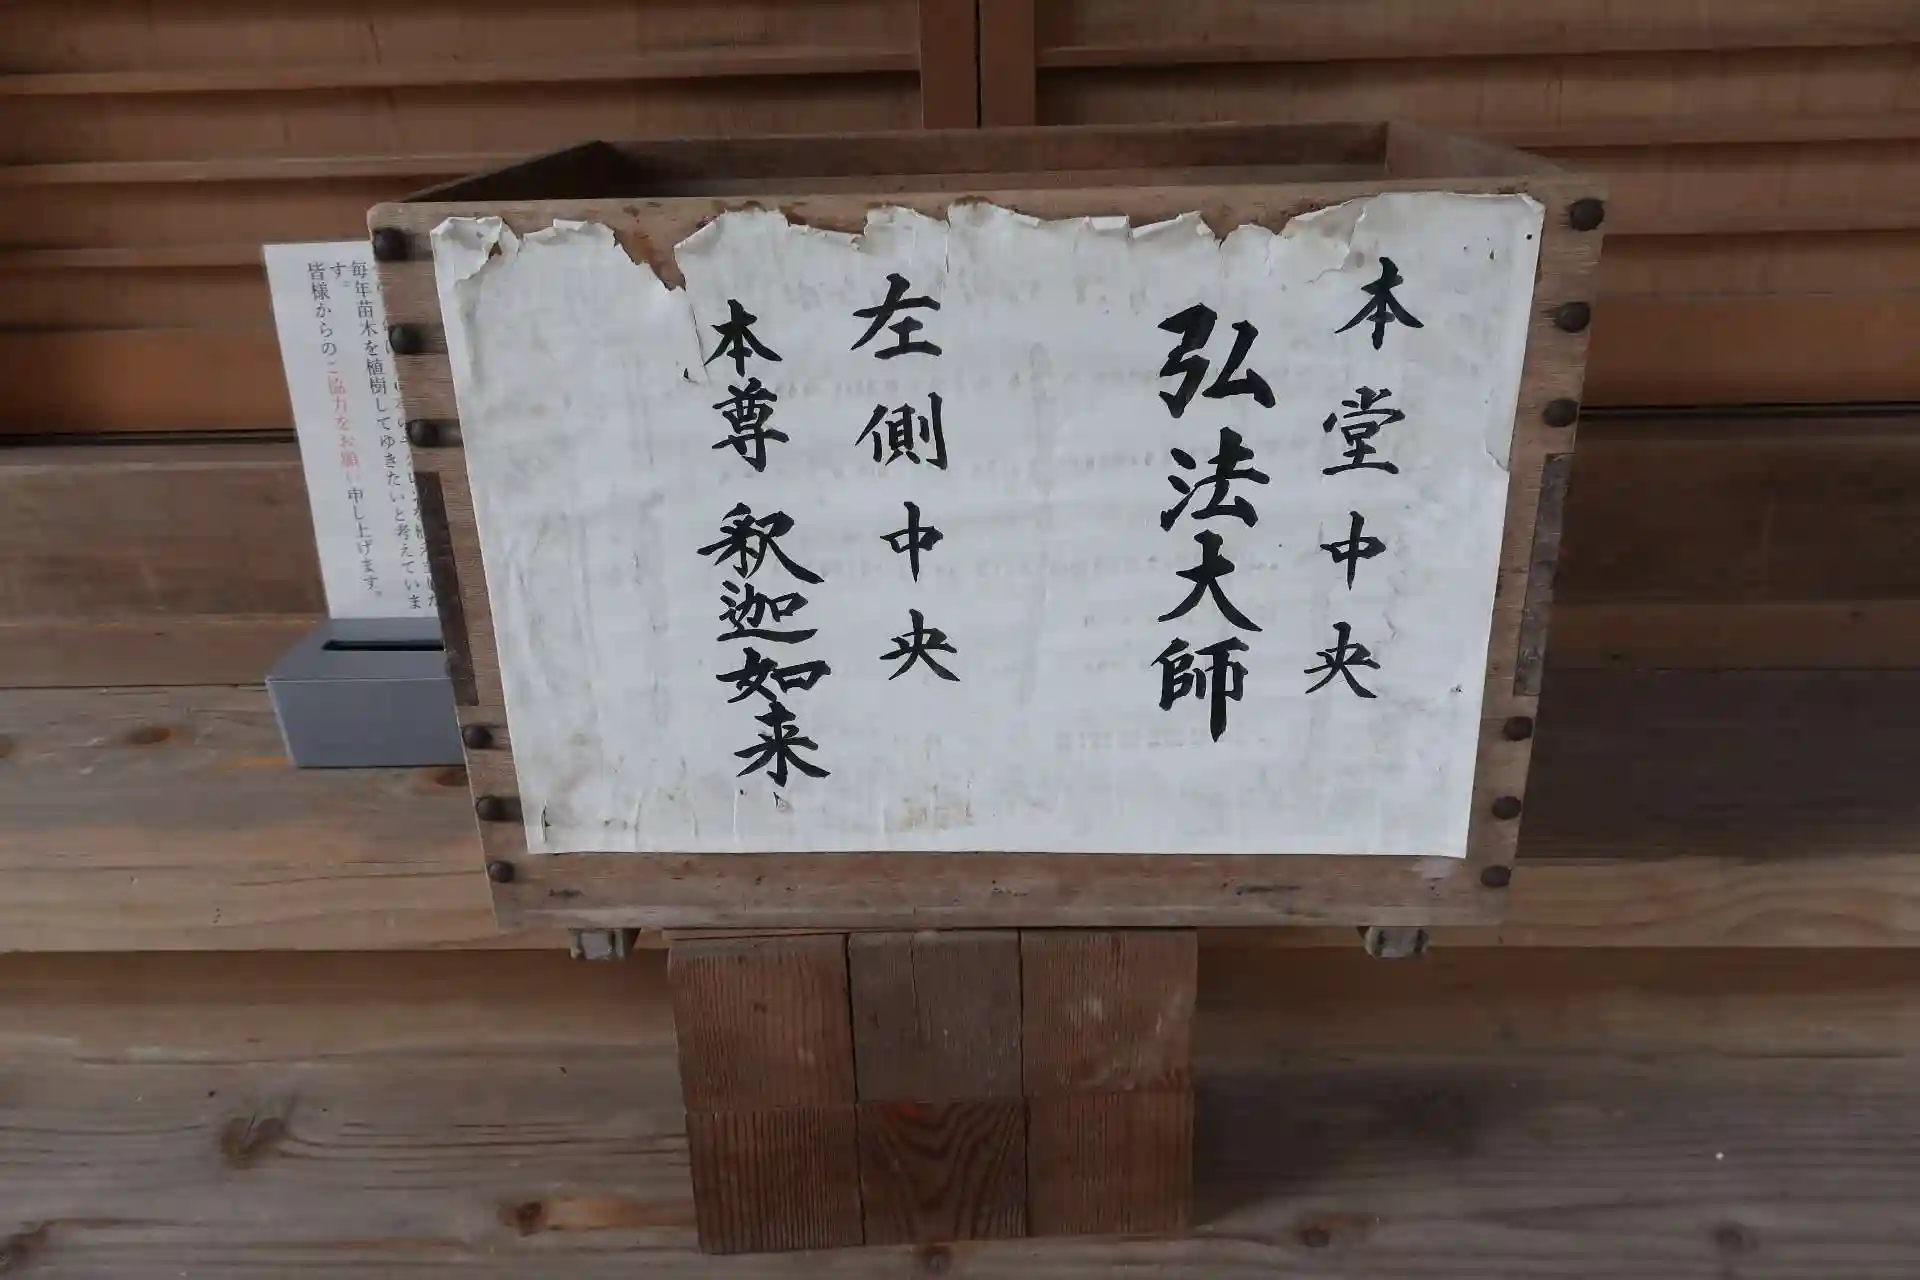 本堂中央
弘法大師
左側中央
本尊 釈迦如来
毎年苗木を植樹してゆきたいと考えていま
す。
皆様からのご協力をお願い申し上げます。